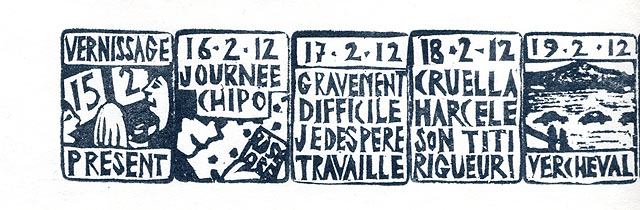 VERNISSAGE
15 2
PRESENT
16·2·12
JOURNEE
CHIPO
17·2·12
GRAVEMENT
DIFFICILE
JEDESPERE
TRAVAILLE
18·2·12
CRUELLA
HARCELE
SON TITI
RIGUEUR!
19·2·12
VERCHEVAL